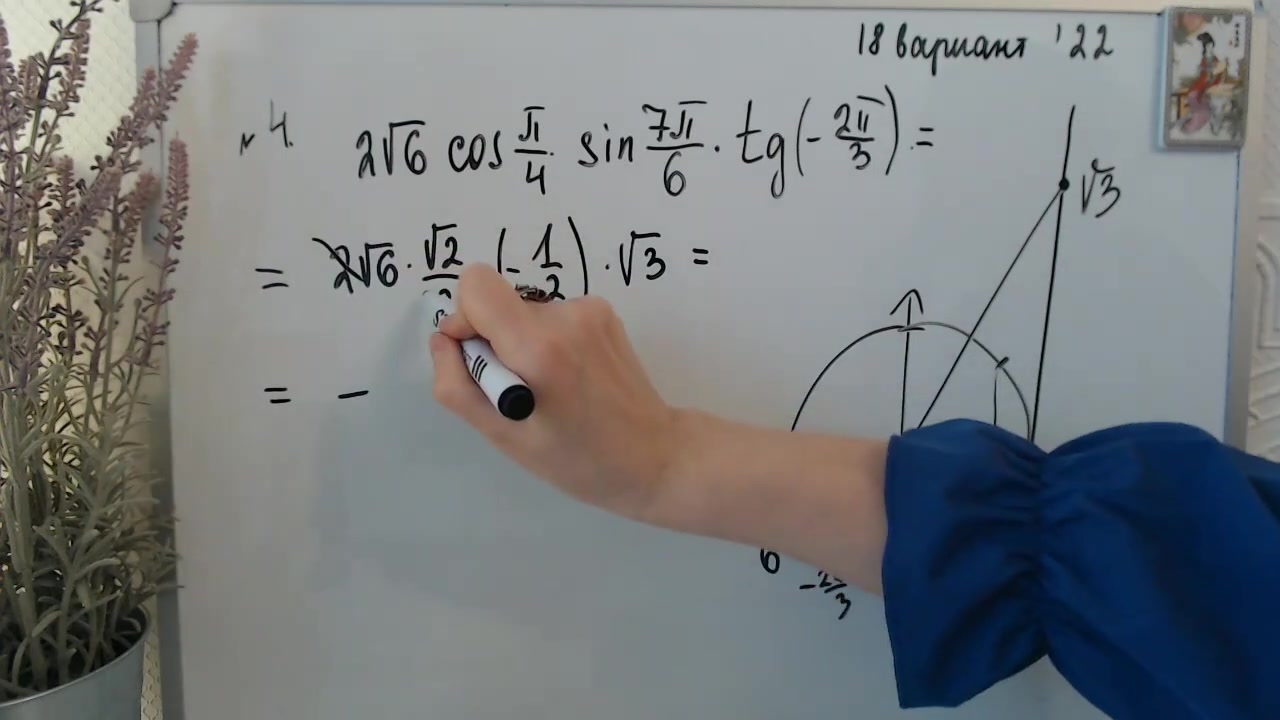 18 вариант '22
№4. 2√6 cos π/4 · sin 7π/6 · tg(-2π/3) =
= 2√6 · √2/2 (-1/2) · √3 =
= -
√3
6
-2π/3